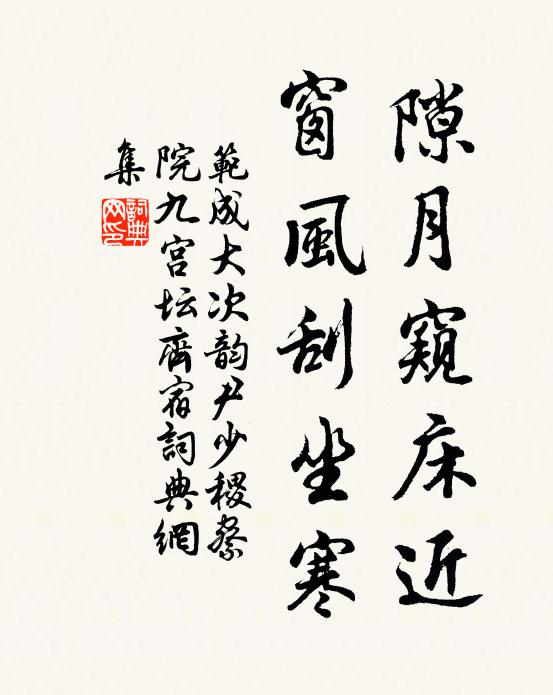 隙月窺床近
窗風刮坐寒
範成大次韵尹少稷察
院九宫坛齊宿詞典網
集
詞典網印